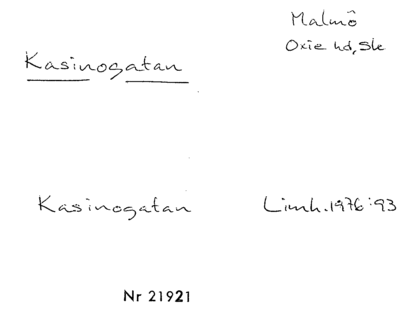 Malmö
Oxie hd, Sk
Kasinogatan
Kasinogatan Limh. 1976:93
Nr 21921